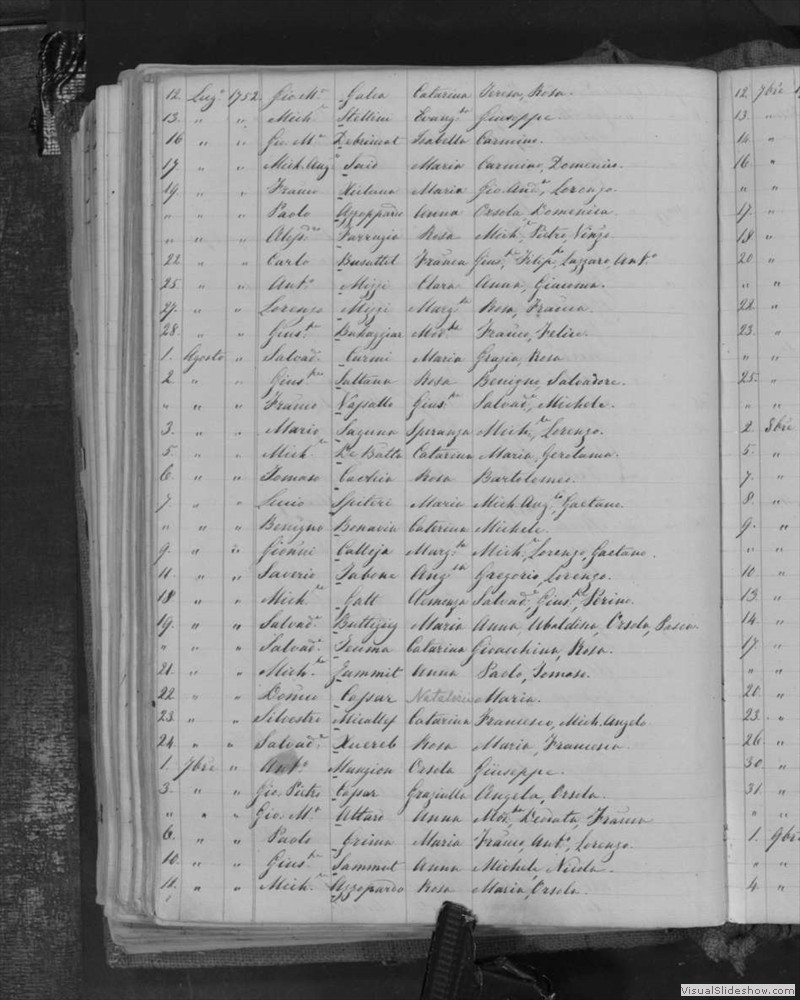 12. Lug.o 1752. Gio M.a Galea Catarina Teresa, Rosa.
13. " " Mich.e Stellini Evang.ta Giuseppe.
16 " " Gio. M.a Debrincat Isabella Carmine.
17. " " Mich. Ang.o Said Maria Carmine, Domenico.
19. " " Franco Xicluna Maria Gio. And.a, Lorenzo.
" " " Paolo Azzoppardo Anna Orsola Domenica.
" " " Aless.ro Farrugia Rosa Mich.e, Pietro, Vinzo.
22 " " Carlo Busuttil Franca Gius.e, Filip.o, Lazzaro, Ant.o
25. " " Ant.o Mizzi Clara Anna, Giacoma.
27. " " Lorenzo Mizzi Marg.ta Rosa, Franca.
28. " " Gius.e Buhagiar Mad.na Franco, Felice.
1. Agosto " Salvad.e Curmi Maria Grazia, Rosa
2. " " Gius.e Sultana Rosa Benigno, Salvadore.
" " " Franco Vassallo Gius.a Salvad.e, Michele.
3. " " Mario Saguna Speranza Mich.e, Lorenzo.
5. " " Mich.e De Battis Catarina Maria, Gerolama.
6. " " Tomaso Rosa Bartolomeo.
7. " " Lucio Spiteri Maria Mich. Ang.o, Gaetano.
" " " Benigno Bonavia Caterina Michele.
9. " " Gionni Calleja Marg.ta Mich.e, Lorenzo, Gaetano.
11. " " Saverio Tabone Ang.la Gregorio, Lorenzo.
18 " " Mich.e Gatt Clemenza Salvad.e, Gius.e,
19. " " Salvad.e Buttigieg Maria Anna, Ubaldesca, Orsola,
" " " Salvad.e Teuma Catarina Gioacchina, Rosa.
21. " " Mich.e Zammit Anna Paolo, Tomaso.
22 " " Domco Cassar Natalizia Maria.
23. " " Silvestro Micallef Catarina Francesco, Mich. Angelo
24. " " Salvad.e Xuereb Rosa Maria, Francesca.
1. 7bre " Ant.o Manzion Orsola Giuseppe.
3. " " Gio. Pietro Cassar Graziulla Angela, Orsola.
" " " Gio. M.a Attard Anna Mad.na, Deodata, Franca
6. " " Paolo Grima Maria Franco, Ant.o, Lorenzo.
10. " " Gius.e Sammut Anna Michele Nicola.
11. " " Mich.e Azzopardo Rosa Maria, Orsola.
12. 7bre 1
13. "
14. "
16 "
" "
17. "
18 "
20 "
" "
22. "
23. "
" "
25. "
" "
2. 8bre
5. "
7. "
8. "
9. "
" "
10. "
13. "
14. "
17. "
" "
20. "
23. "
26 "
30. "
31. "
" "
1. 9bre
" "
4. "
VisualSlideshow.com